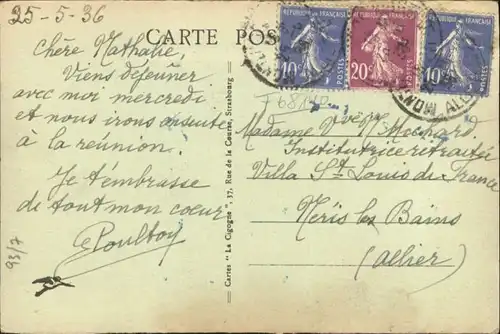 25-5-36
CARTE POS
Chère Nathalie,
Viens déjeuner
avec moi mercredi
et nous irons ensuite
à la réunion.
Je t'embrasse
de tout mon coeur
93/7
Cartes "La Cigogne" 37, Rue de la Course, Strasbourg
RÉPUBLIQUE FRANÇAISE
10c
POSTES
RÉPUBLIQUE FRANÇAISE
20c
POSTES
RÉPUBLIQUE FRANÇAISE
10c
POSTES
Madame Vve
Institutrice retraitée
Villa St Louis de France
Néris les Bains
(Allier)